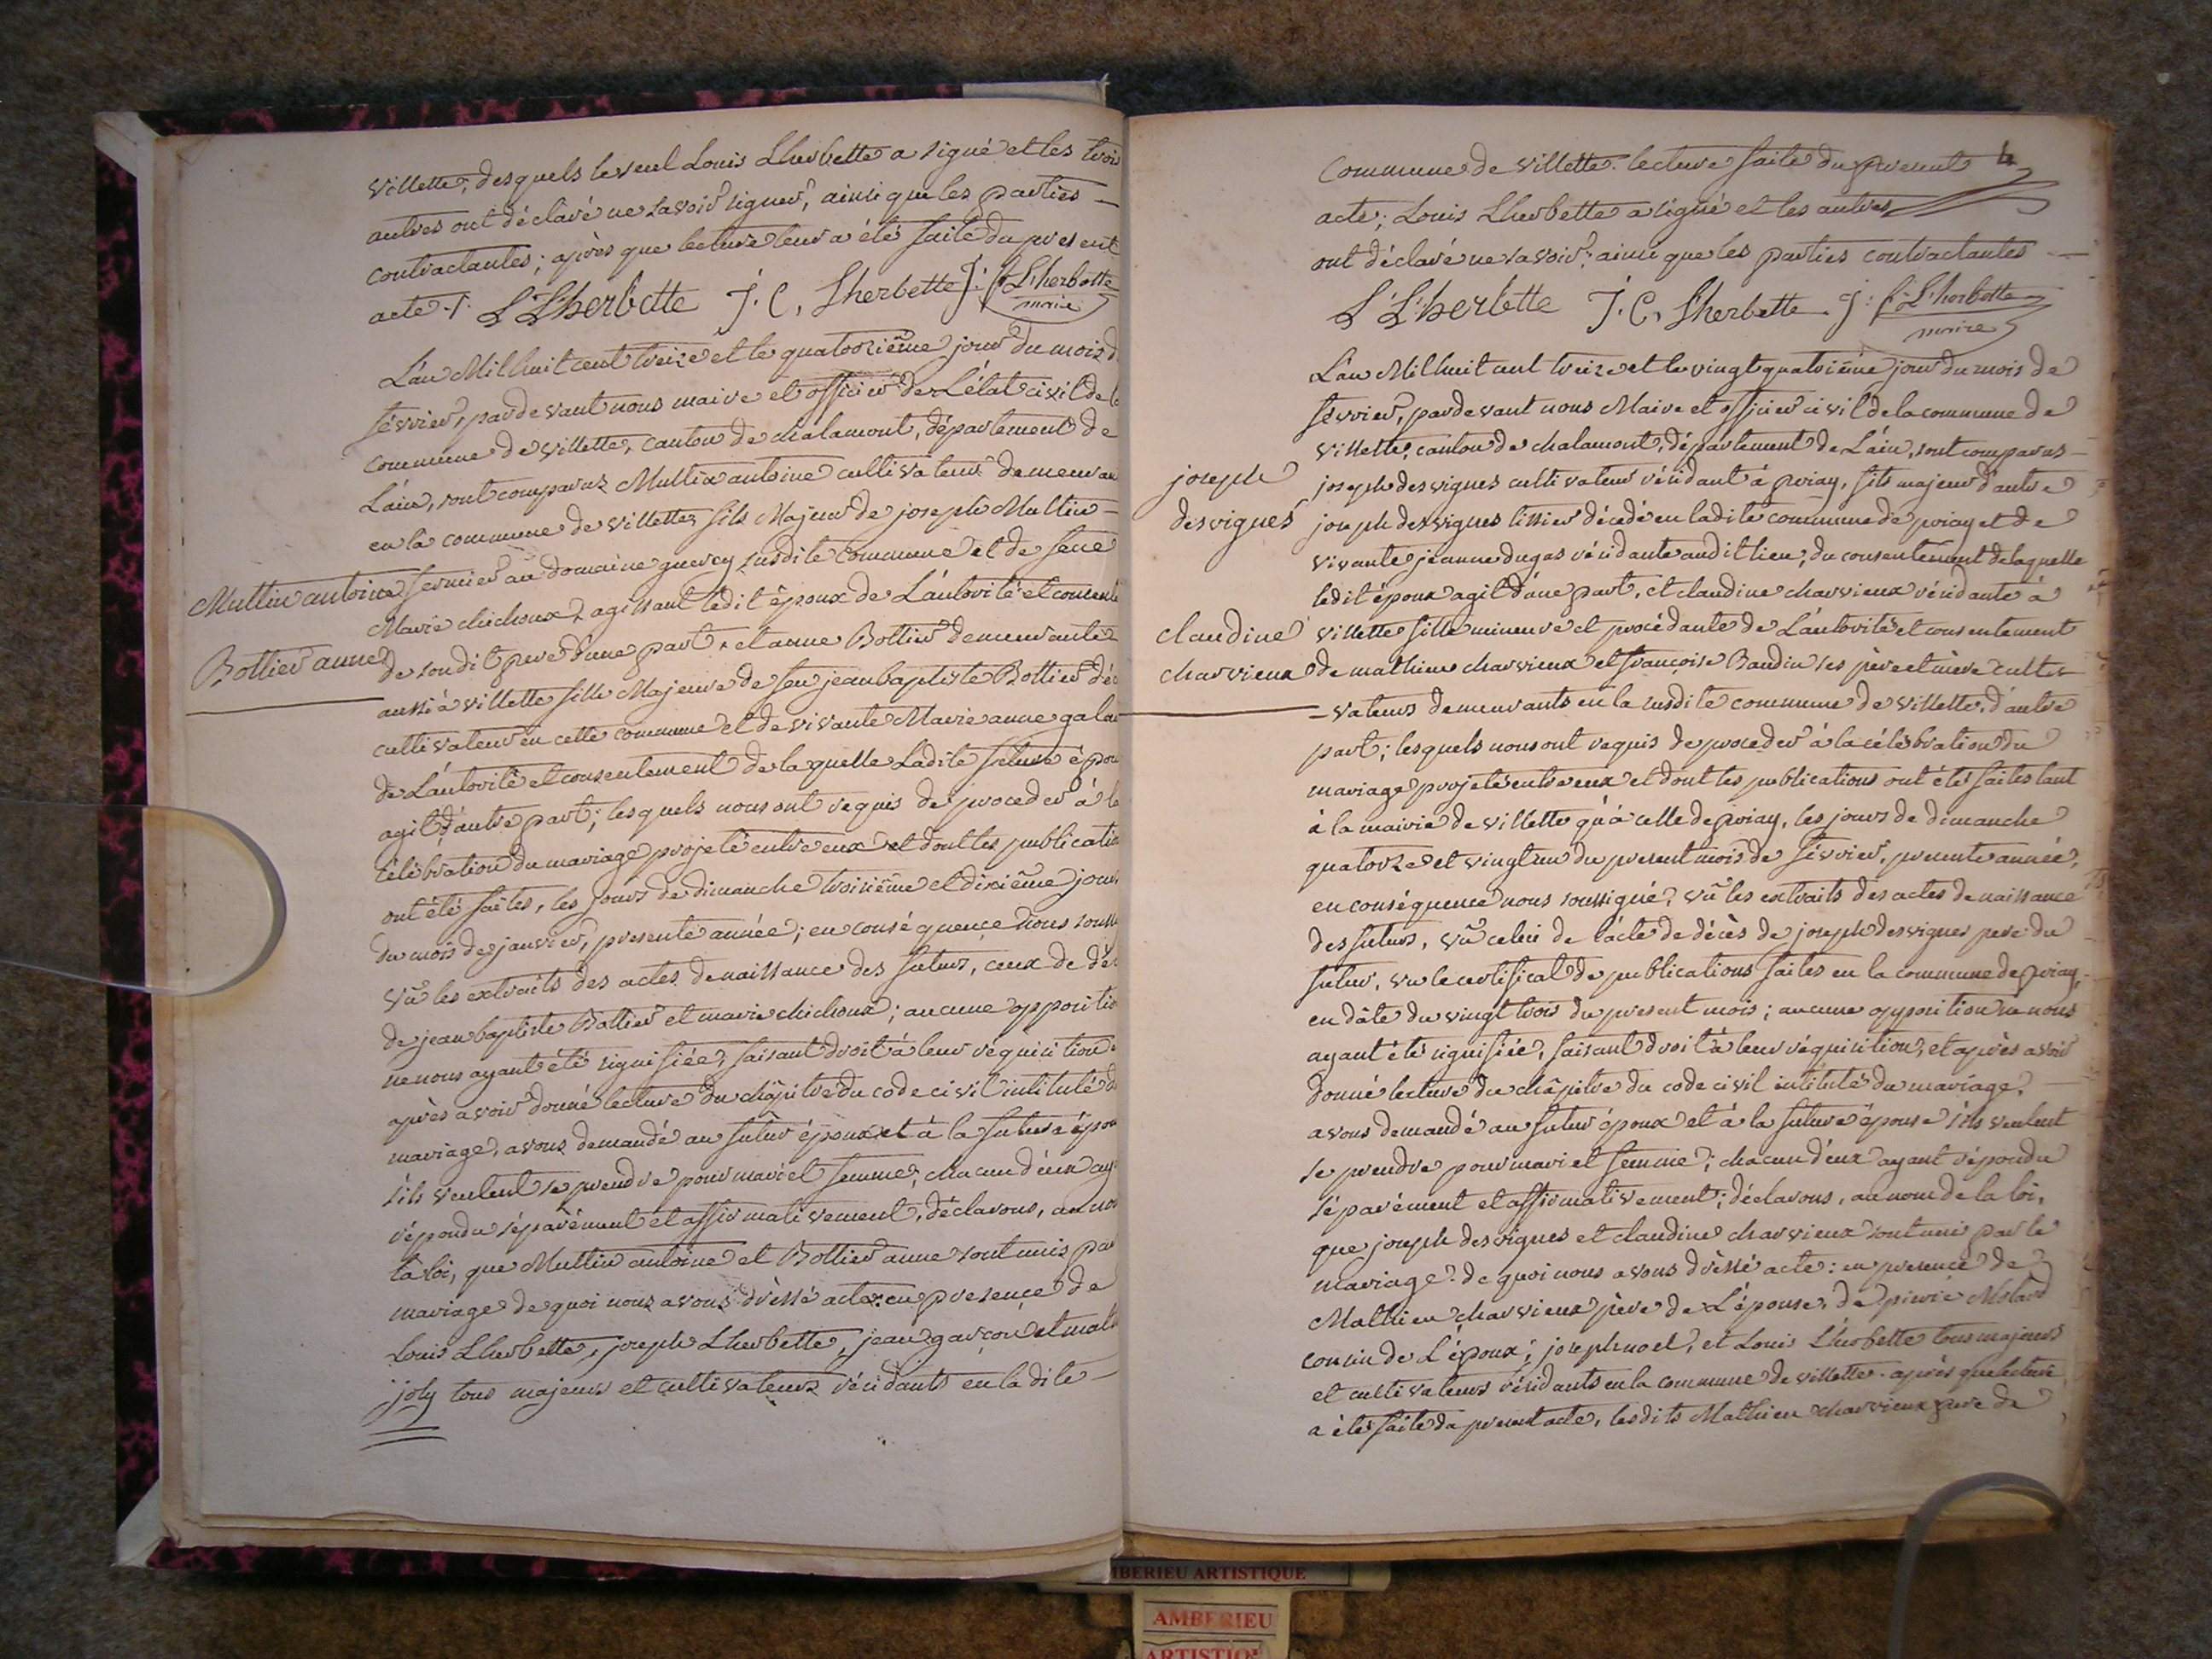 villette, desquels le seul Louis Lherbette a signé et les trois
autres ont déclaré ne savoir signer, ainsi que les parties
contractantes ; après que lecture leur a été faite du present
acte. /. L Lherbette J. C. Lherbette J: f. Lherbette
maire
L'an Mil huit cent treize et le quatorzième jour du mois d
février, pardevant nous maire et officier de L'état civil de l
commune de villette, canton de chalamont, département de
L'ain, sont comparus Multin antoine cultivateur demeuran
en la commune de villette, fils Majeur de joseph Multin
Multin antoine fermier au domaine guercy susdite commune et de feue
Marie chichoux, agissant ledit époux de L'autorité et consente
Bottier anne de son dit pere d'une part, et anne Bottier demeurante
aussi à villette fille Majeure de feu jean baptiste Bottier déc
cultivateur en cette commune et de vivante Marie anne galan
de L'autorité et consentement de la quelle Ladite future épou
agit, d'autre part ; lesquels nous ont requis de proceder à la
célébration du mariage projeté entre eux et dont les publicatio
ont été faites, les jours de dimanche troisième et dixième jour
du mois de janvier, presente année ; en conséquence nous souss
vû les extraits des actes de naissance des futurs, ceux de déc
de jean baptiste Bottier et marie chichoux ; aucune oppositio
ne nous ayant été signifiée, faisant droit à leur requisition
après avoir donné lecture du châpitre du code civil intitulé d
mariage, avons demandé au futur époux et à la future épou
s'ils veulent se prendre pour mari et femme, chacun d'eux ay
répondu séparément et affirmativement, déclarons, au no
la loi, que Multin antoine et Bottier anne sont unis pa
mariage de quoi nous avons dréssé acte : en presence de
Louis Lherbette, joseph Lherbette, jean garçon et math
joly tous majeurs et cultivateurs résidants en la dite
4
commune de villette. lecture faite du present
acte ; Louis Lherbette a signé et les autres
ont déclaré ne savoir ; ainsi que les parties contractantes
L Lherbette J. C. Lherbette J: f. Lherbette
maire
L'an Mil huit cent treize et le vingt quatrième jour du mois de
février, pardevant nous Maire et officier civil de la commune de
villette, canton de chalamont, département de L'ain, sont comparus
joseph joseph desvignes cultivateur résidant à priay, fils majeur d'autre
desvignes joseph desvignes tissier décédé en ladite commune de priay et de
vivante jeanne dugas résidante audit lieu, du consentement de laquelle
ledit époux agit d'une part, et claudine charvieux résidante à
claudine villette fille mineure et procédante de L'autorité et consentement
charvieux de mathieu charvieux et françoise Baudin ses père et mère culti
-vateurs demeurants en la susdite commune de villette, d'autre
part ; lesquels nous ont requis de proceder à la célébration du
mariage projeté entre eux et dont les publications ont été faites tant
à la mairie de villette qu'à celle de priay, les jours de dimanche
quatorze et vingt un du present mois de février, presente année,
en conséquence nous soussigné, vû les extraits des actes de naissance
des futurs, vû celui de l'acte de décès de joseph desvignes pere du
futur, vu le certificat de publications faites en la commune de priay,
en date du vingt trois du present mois ; aucune opposition ne nous
ayant été signifiée, faisant droit à leur réquisition, et après avoir
donné lecture du châpitre du code civil intitulé du mariage,
avons demandé au futur époux et à la future épouse s'ils veulent
se prendre pour mari et femme ; chacun d'eux ayant répondu
séparément et affirmativement ; déclarons, au nom de la loi,
que joseph desvignes et claudine charvieux sont unis par le
mariage. de quoi nous avons dréssé acte : en presence de
Mathieu charvieux père de L'épouse, de pierre Molard
cousin de L'époux ; joseph noel, et Louis Lherbette tous majeurs
et cultivateurs résidants en la commune de villette. après que lecture
a été faite du present acte, lesdits Mathieu charvieux pere de
AMBERIEU ARTISTIQUE
AMBERIEU
ARTISTIQ